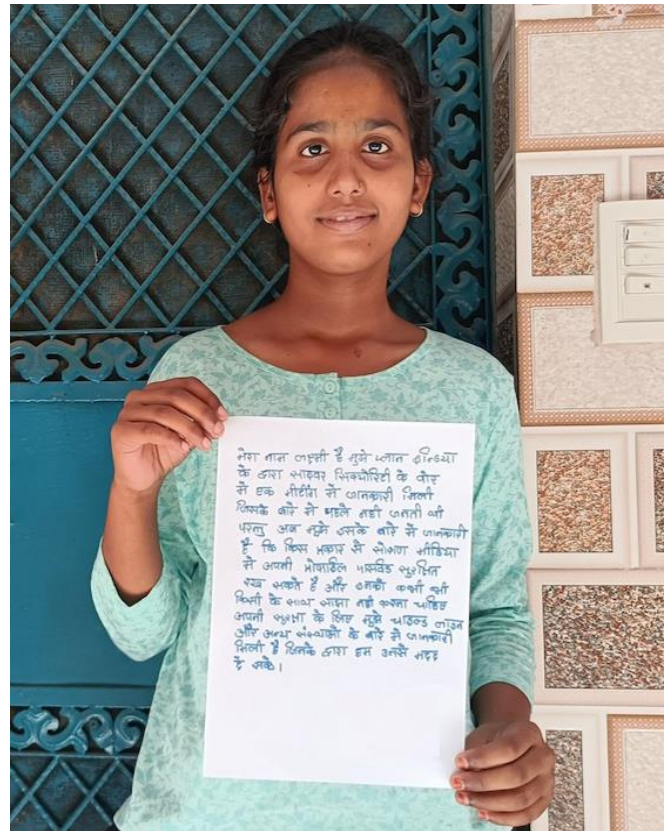 मेरा नाम लक्ष्मी है मुझे प्लान इन्डिया
के द्वारा साइबर सिक्योरिटी के बारे
में एक मीटिंग में जानकारी मिली
जिसके बारे में पहले नही जानती थी
परन्तु अब मुझे उसके बारे में जानकारी
है कि किस प्रकार से सोशल मीडिया
में अपनी पासवर्ड सुरक्षित
रख सकते है और उनको कभी भी
किसी के साथ साझा नही करना चाहिए
अपनी सुरक्षा के लिए मुझे चाइल्ड लाइन
और अन्य संस्थाओ के बारे में जानकारी
मिली है जिनके द्वारा हम उनसे मदद
ले सके।